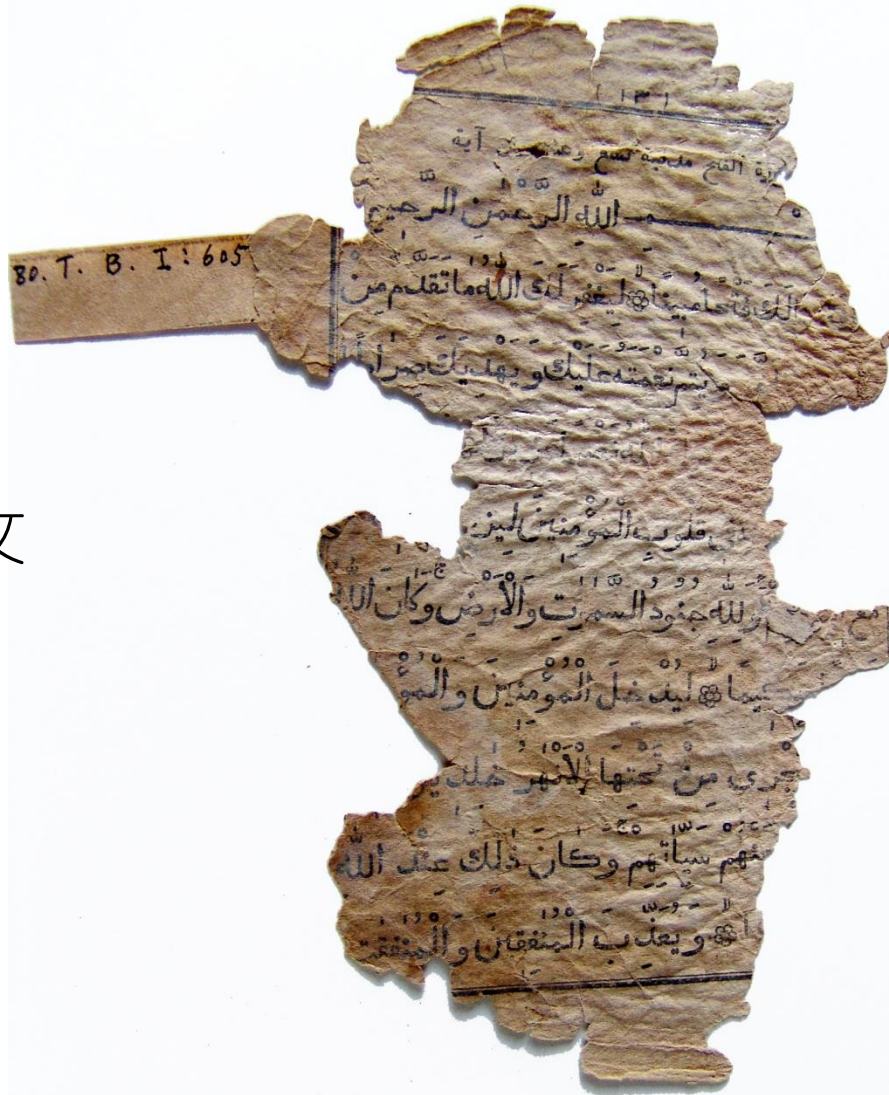 (١٣)
سورة الفتح مدنية تسع وعشرون آية
ـم اللّٰه الرَّحْمٰنِ الرَّحِيمِ
لَكَ فَتْحًا مُبِينًا لِيَغْفِرَ لَكَ اللّٰهُ مَا تَقَدَّمَ مِنْ
وَيُتِمَّ نِعْمَتَهُ عَلَيْكَ وَيَهْدِيَكَ صِرَاطًا
اللّٰه
فِي قُلُوبِ الْمُؤْمِنِينَ لِيَز
وَلِلّٰهِ جُنُودُ السَّمٰوٰتِ وَالْأَرْضِ وَكَانَ اللّٰهُ
حَكِيمًا لِيُدْخِلَ الْمُؤْمِنِينَ وَالْمُؤْ
تَجْرِى مِنْ تَحْتِهَا الْأَنْهٰرُ خٰلِدِيْ
عَنْهُمْ سَيِّاٰتِهِمْ وَكَانَ ذٰلِكَ عِنْدَ اللّٰهِ
وَيُعَذِّبَ الْمُنٰفِقِينَ وَالْمُنٰفِقٰت
80. T. B. I : 605
文